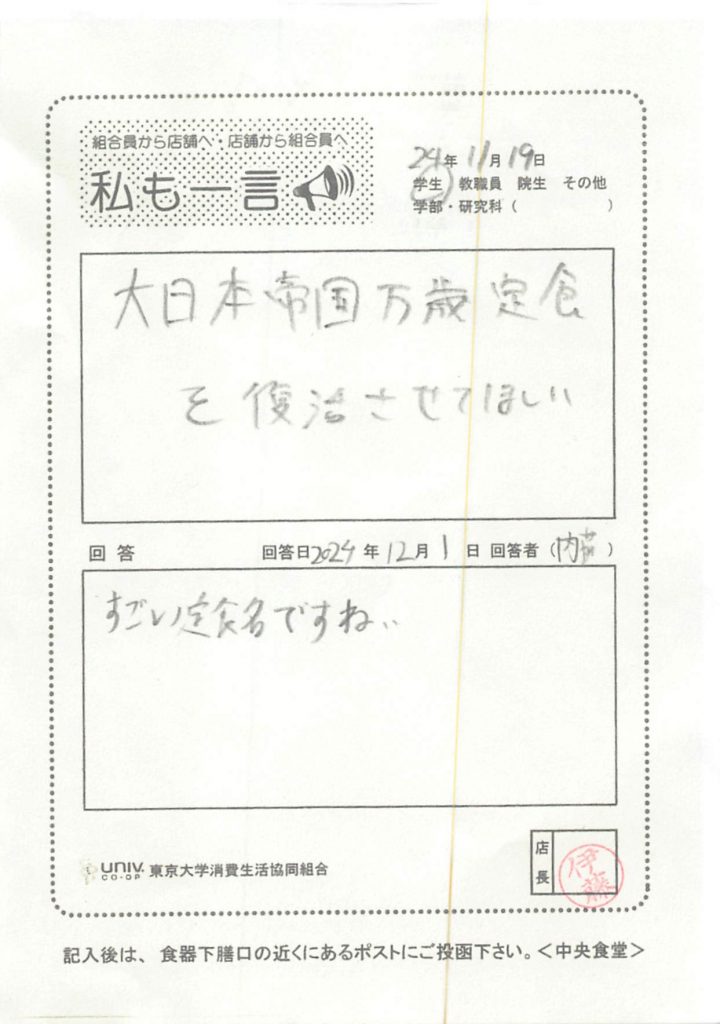 組合員から店舗へ・店舗から組合員へ
私も一言
24年 11月 19日
学生 教職員 院生 その他
学部・研究科（ ）
大日本帝国万歳定食
を復活させてほしい
回答 回答日2024年12月1日 回答者（内藤）
すごい定食名ですね..
店長
伊藤
UNIV. CO-OP 東京大学消費生活協同組合
記入後は、食器下膳口の近くにあるポストにご投函下さい。＜中央食堂＞